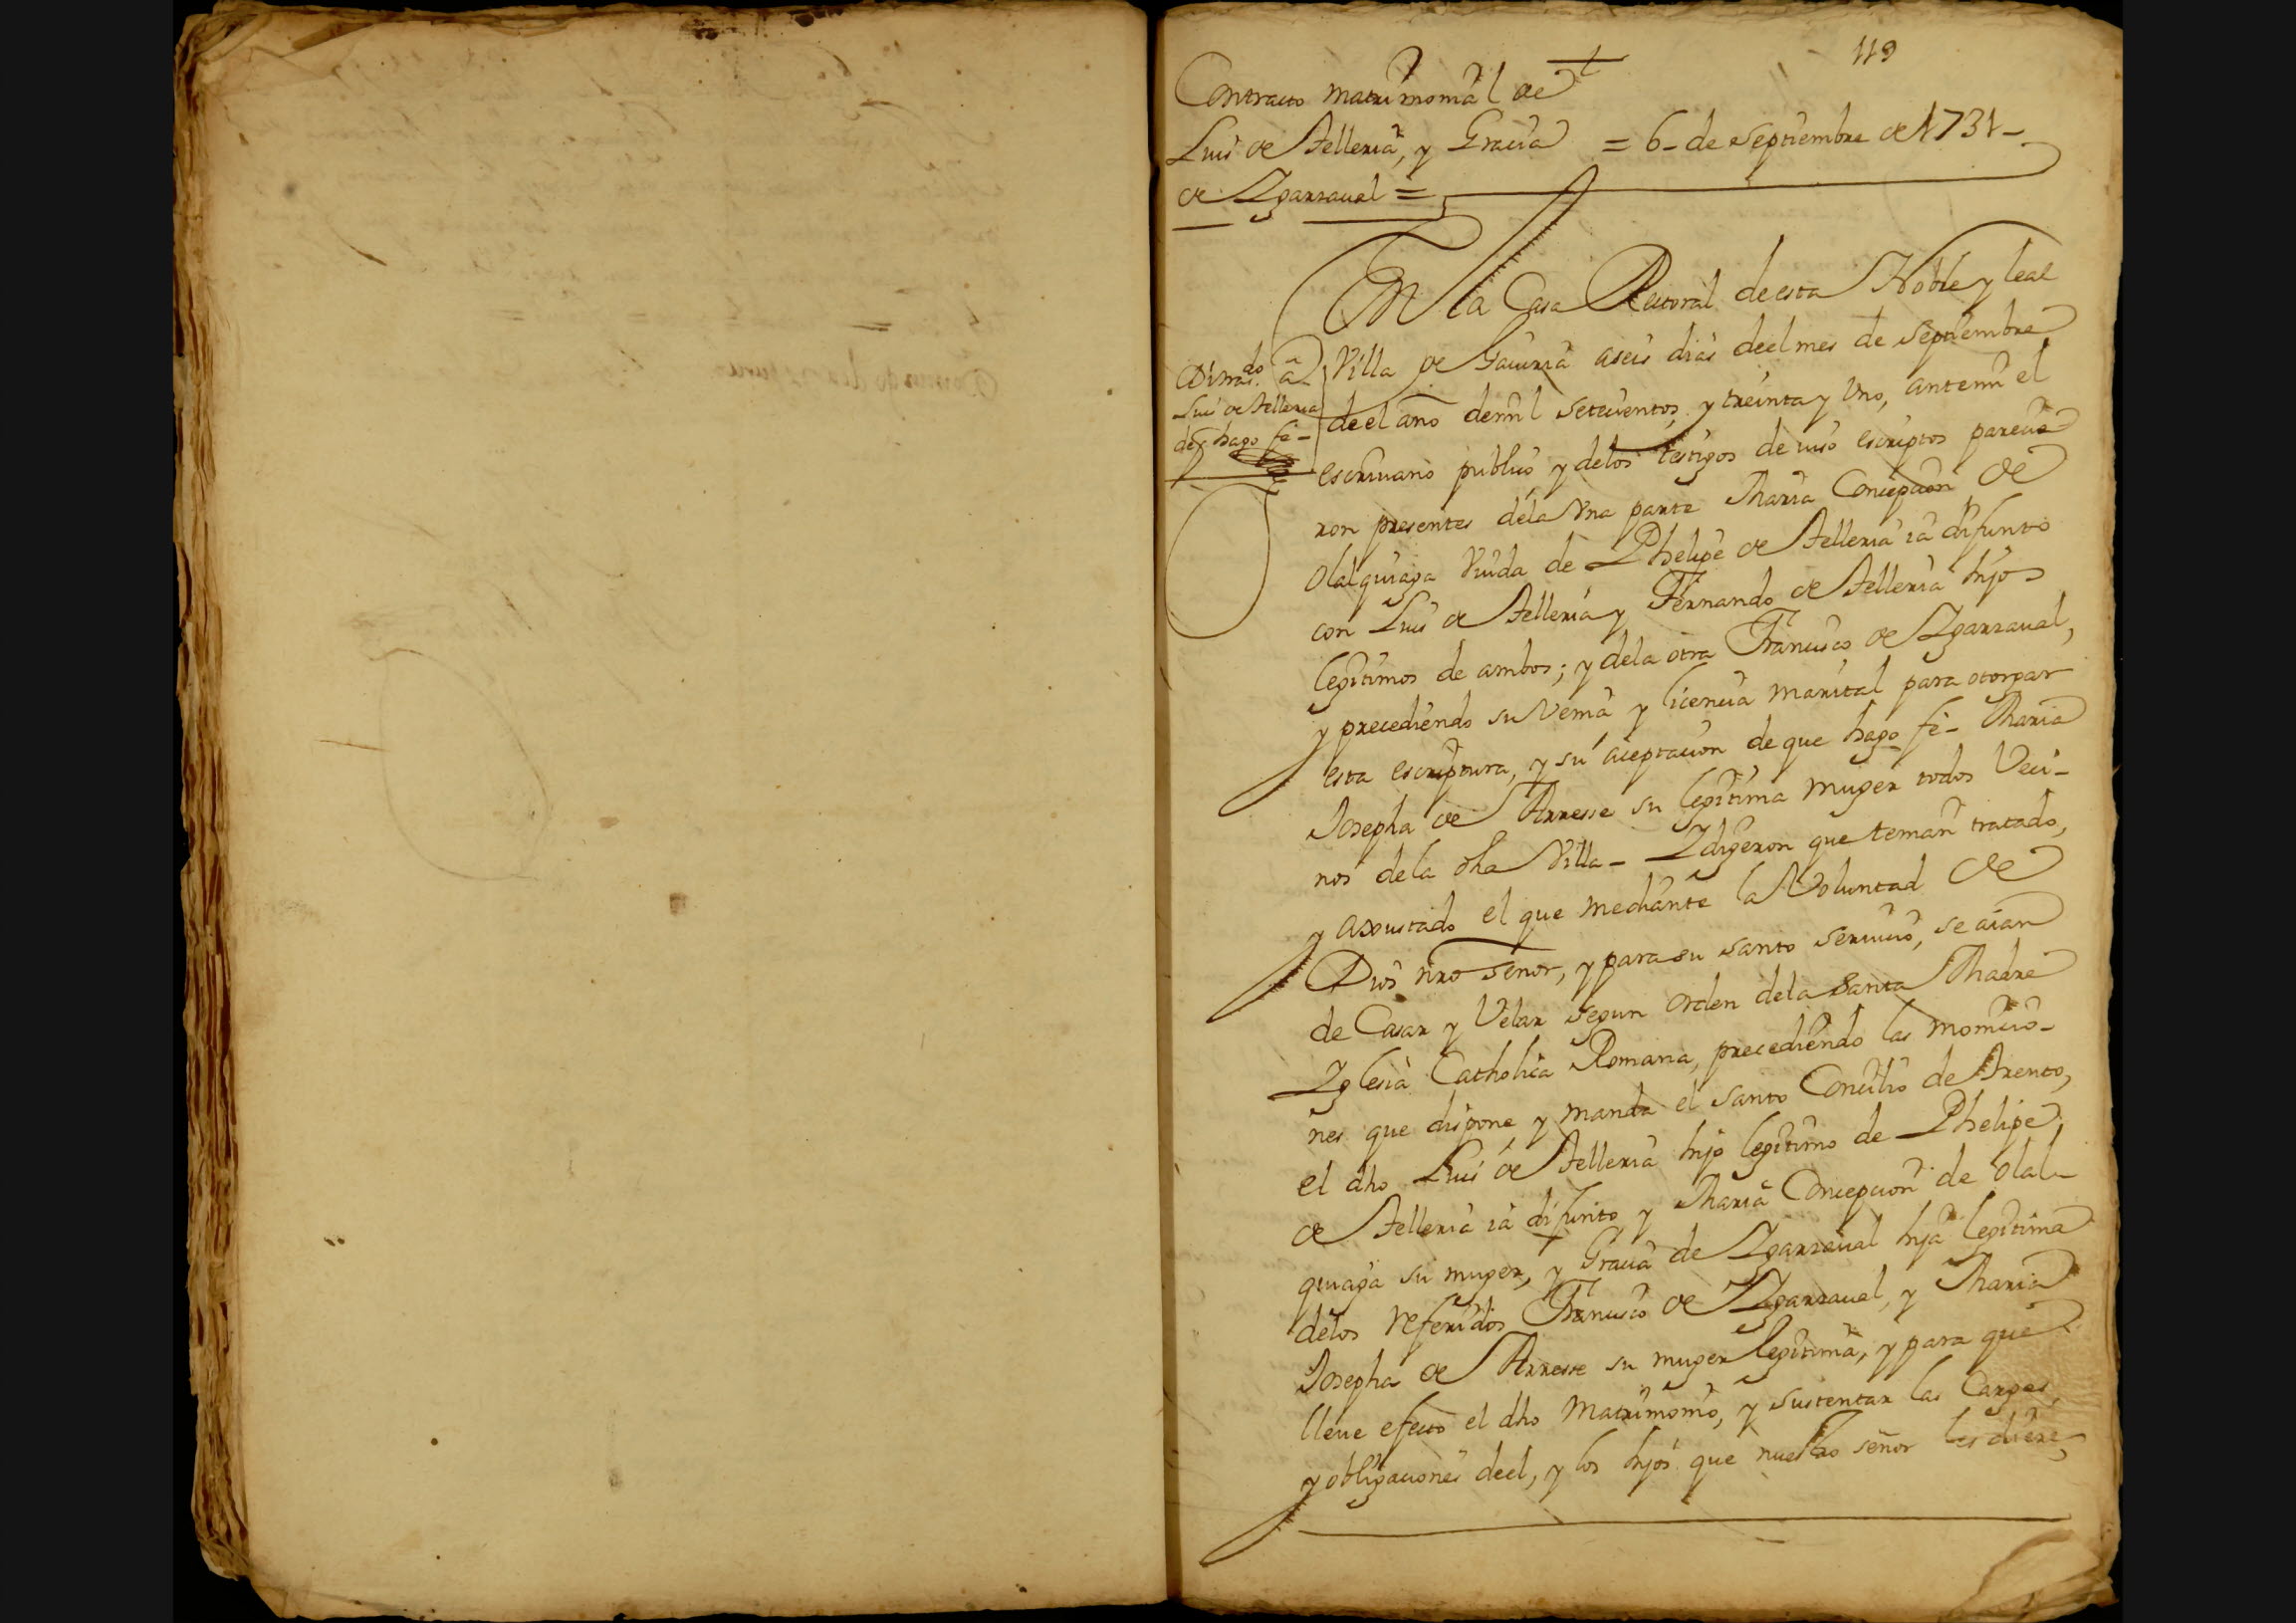 119
Contracto matrimonial de
Luis de Telleria, y Gracia = 6- de Septiembre de 1731-
de Ygarzaual =
En la Casa Rectoral de esta Noble y leal
Villa de Gauiria a seis dias de el mes de Septiembre
de el año de mil setecientos, y treinta y Uno, ante mi el
escriuano publico y de los testigos de iuso escriptos parecie
ron presentes de la Vna parte Maria Concepcion de
Olalquiaga Viuda de Phelipe de Telleria ia difunto
con Luis de Telleria y Fernando de Telleria hijos
legitimos de ambos; y dela otra Francisco de Ygarzaual,
y precediendo su Venia y licencia marital para otorgar
esta escriptura, y su aceptacion de que hago fe- Maria
Josepha de Arresse su legitima muger todos Veci-
nos de la dha Villa- Y digeron que tenian tratado,
y axustado el que mediante la Voluntad de
Dios nro señor, y para su santo seruicio, se aian
de Casar y Velar segun orden dela Santa Madre
Yglesia Catholica Romana, precediendo las monicio-
nes que dispone y manda el santo Concilio de Trento,
el dho Luis de Telleria hijo legitimo de Phelipe
de Telleria ia difunto y Maria Concepcion de Olal-
quiaga su muger, y Gracia de Ygarzaual hija legitima
delos referidos Francisco de Ygarzaual, y Maria
Josepha de Arresse su muger legitima, y para que
lleue efecto el dho Matrimonio, y sustentar las Cargas,
y obligaciones de el, y los hijos que nuestro señor les diere,
a
Luis de Telleria
de q hago fe-